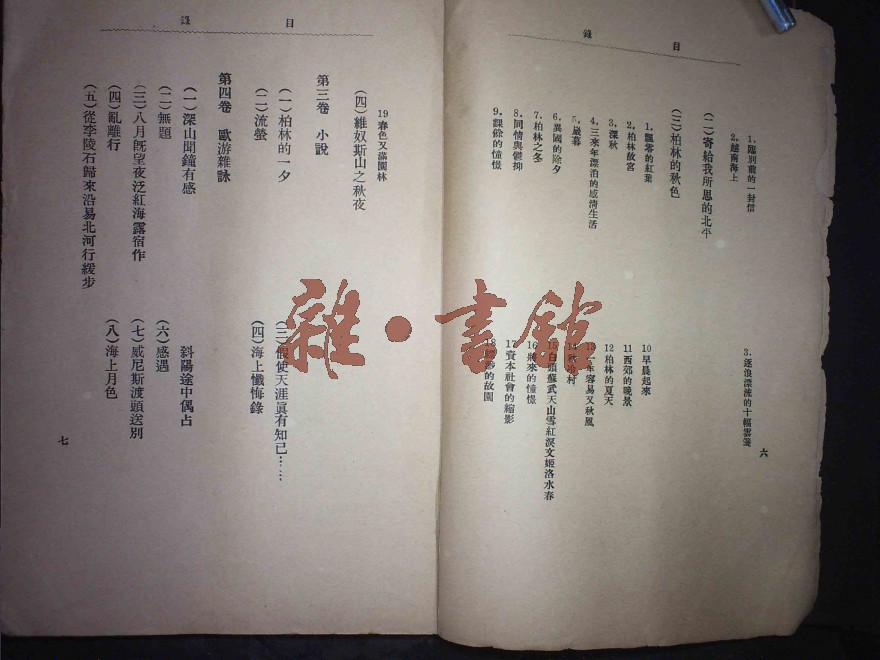 目錄
1. 臨別前的一封信
2. 越南海上
3. 逐浪漂流的十幅雲箋
(二)寄給我所思的北平
(三)柏林的秋色
1. 飄零的紅葉
2. 柏林故宮
3. 深秋
4. 三來年漂泊的感情生活
5. 歲暮
6. 異國的除夕
7. 柏林之冬
8. 同情與鬱抑
9. 課餘的憧憬
10 早晨起來
11 西郊的晚景
12 柏林的夏天
13 一年容易又秋風
14 秋冷村
15 白頭蘇武天山雪紅淚文姬洛水春
16 將來的憧憬
17 資本社會的縮影
18 的故園
六
目錄
19 春色又滿園林
(四)維奴斯山之秋夜
第三卷 小說
(一)柏林的一夕
(二)流螢
(三)假使天涯眞有知己……
(四)海上懺悔錄
第四卷 歐游雜詠
(一)深山聞鐘有感
(二)無題
(三)八月旣望夜泛紅海露宿作
(四)亂離行
(五)從李陵石歸來沿易北河行緩步
斜陽途中偶占
(六)感遇
(七)威尼斯渡頭送別
(八)海上月色
七
雜·書館